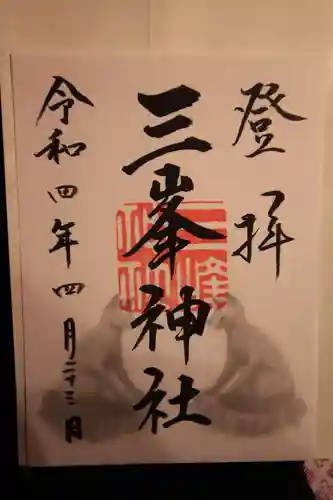 登拝
三峯神社
令和四年四月二十三日